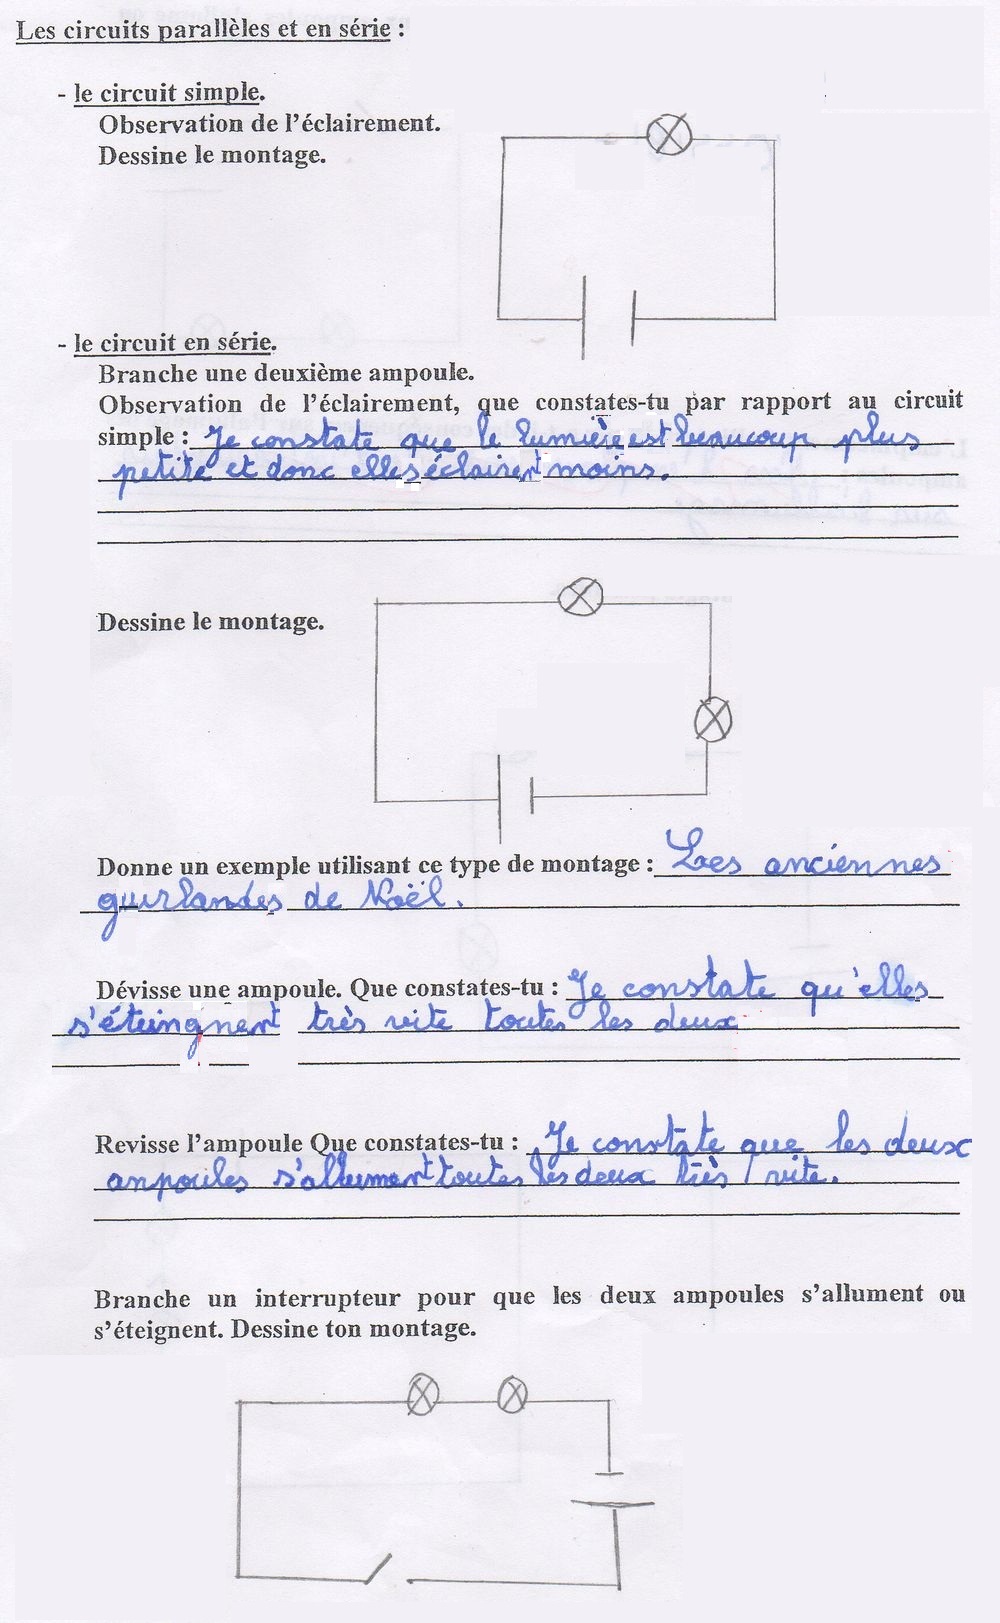 Les circuits parallèles et en série :
- le circuit simple.
Observation de l'éclairement.
Dessine le montage.
- le circuit en série.
Branche une deuxième ampoule.
Observation de l'éclairement, que constates-tu par rapport au circuit
simple : Je constate que le lumière est beaucoup plus
petite et donc elles éclairent moins.
Dessine le montage.
Donne un exemple utilisant ce type de montage : Les anciennes
guirlandes de Noël.
Dévisse une ampoule. Que constates-tu : Je constate qu'elles
s'éteingnent très vite toutes les deux
Revisse l'ampoule Que constates-tu : Je constate que les deux
ampoules s'allument toutes les deux très vite.
Branche un interrupteur pour que les deux ampoules s'allument ou
s'éteignent. Dessine ton montage.